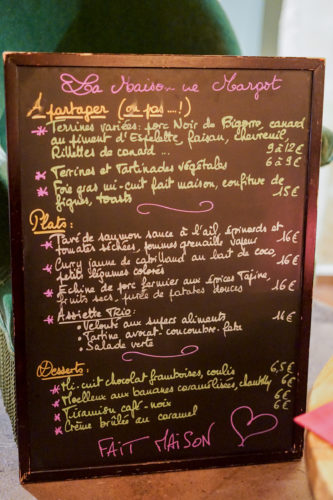 La Maison de Margot
A partager (ou pas....!)
* Terrines variées: porc Noir de Bigorre, canard
au piment d'Espelette, faisan, chevreuil,
Rillettes de canard ... 9 à 12€
* Terrines et Tartinades végétales 6 à 9€
* Foie gras mi-cuit fait maison, confiture de
figues, toasts 15€
Plats:
* Pavé de saumon sauce à l'ail, épinards et
tomates séchées, pommes grenaille vapeur 16€
* Curry jaune de cabillaud au lait de coco,
petits légumes colorés 16€
* Echine de porc fermier aux épices Tajine,
fruits secs, purée de patates douces 16€
* Assiette Trio: 14€
• Velouté aux supers aliments
• Tartine avocat-concombre-feta
• Salade verte
Desserts:
* Mi-cuit chocolat framboises, coulis 6,5€
* Moelleux aux bananes caramélisées, chantilly 6€
* Tiramisu café-noix 6€
* Crème brûlée au caramel 6€
FAIT MAISON